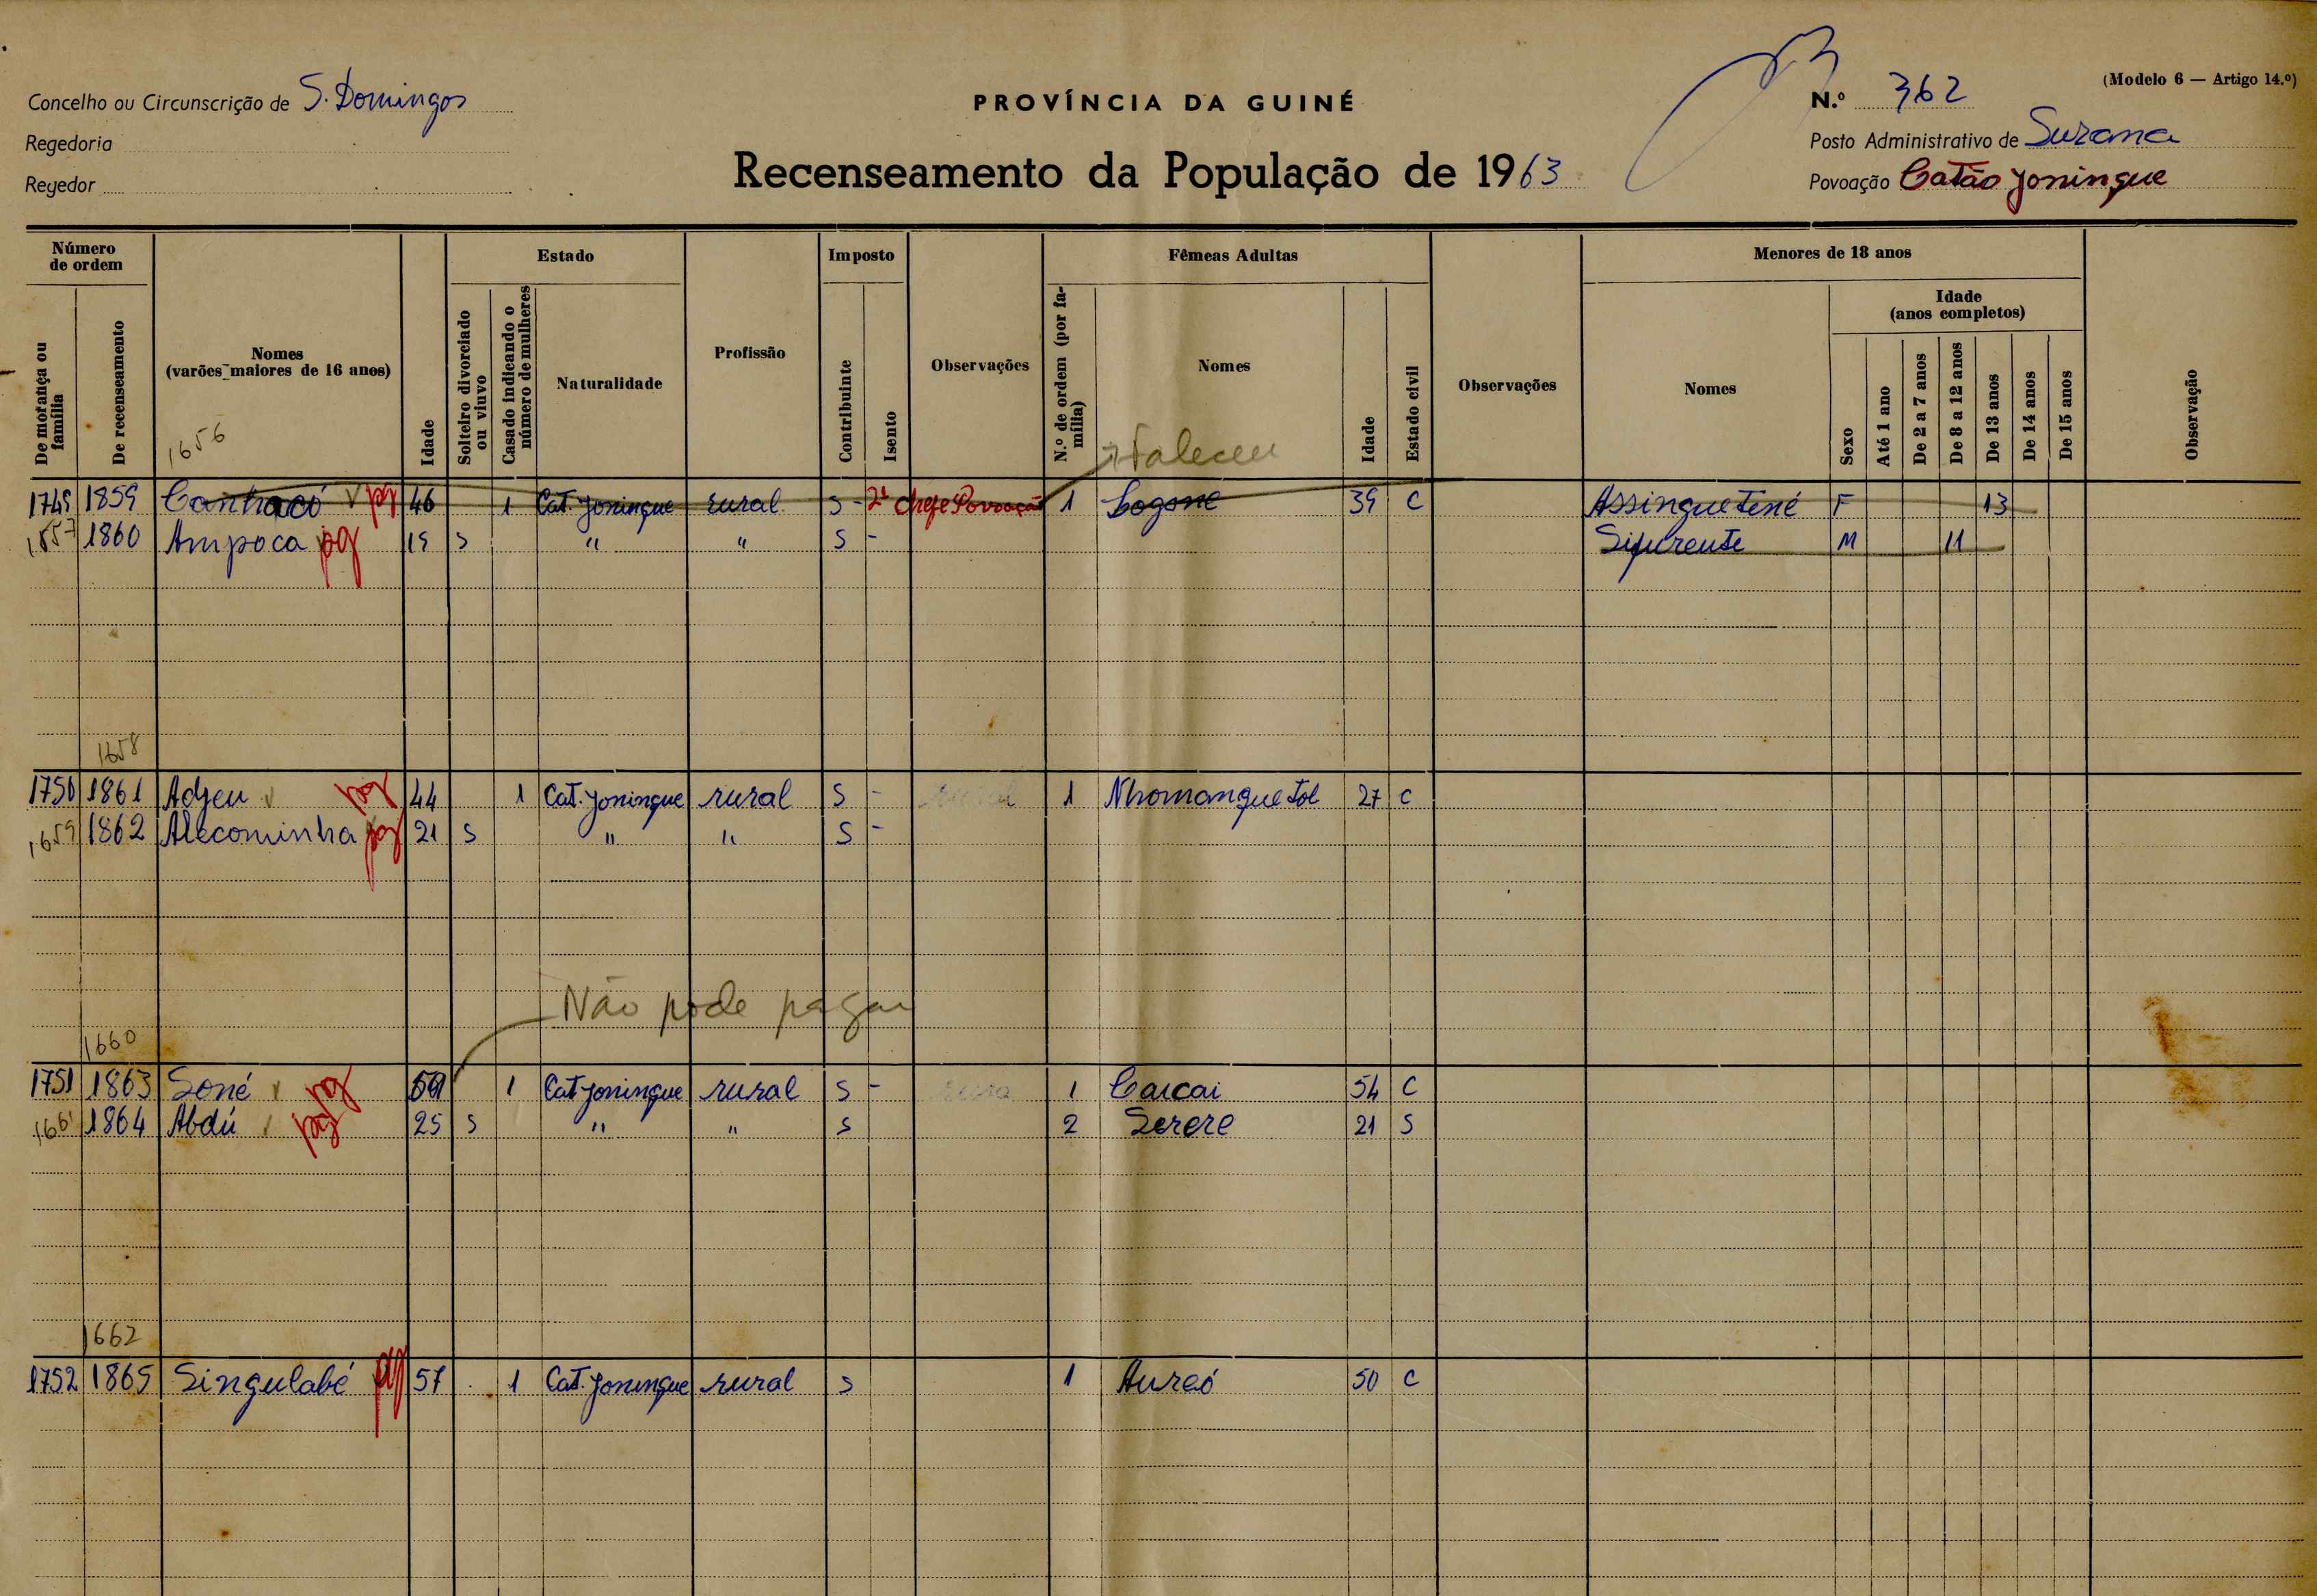 (Modelo 6 — Artigo 14.º)
Concelho ou Circunscrição de S. Domingos
PROVÍNCIA DA GUINÉ
N.º 362
Regedoria
Posto Administrativo de Suzana
Reyedor
Recenseamento da População de 1963
Povoação Catão Joningue
Número de ordem
Estado
Imposto
Fêmeas Adultas
Menores de 18 anos
De morança ou família
De recenseamento
Nomes (varões maiores de 16 anos)
Idade
Solteiro divorciado ou viuvo
Casado indicando o número de mulheres
Naturalidade
Profissão
Contribuinte
Isento
Observações
N.º de ordem (por família)
Nomes
Idade
Estado civil
Observações
Nomes
Idade (anos completos)
Sexo
Até 1 ano
De 2 a 7 anos
De 8 a 12 anos
De 13 anos
De 14 anos
De 15 anos
Observação
1656
Faleceu
1749 1859 pg 46 1 Cat. Joningue rural S - Chefe Povoação 1 39 C Assinguetené F 13
1657 1860 Ampoca pg 19 S " " S - Sifurente M 11
1658
1750 1861 Adjeu v pg 44 1 Cat. Joningue rural S - 1 Nhomanguetol 27 C
1659 1862 Alecominha pg 21 S " " S -
Não pode pagar
1660
1751 1863 Soné v pg 1 Cat Joningue rural S - 1 Caicai 54 C
1661 1864 Abdú v pg 25 S " " S 2 Serere 21 S
1662
1752 1865 Singulabé pg 57 1 Cat. Joningue rural S 1 Aureó 50 C